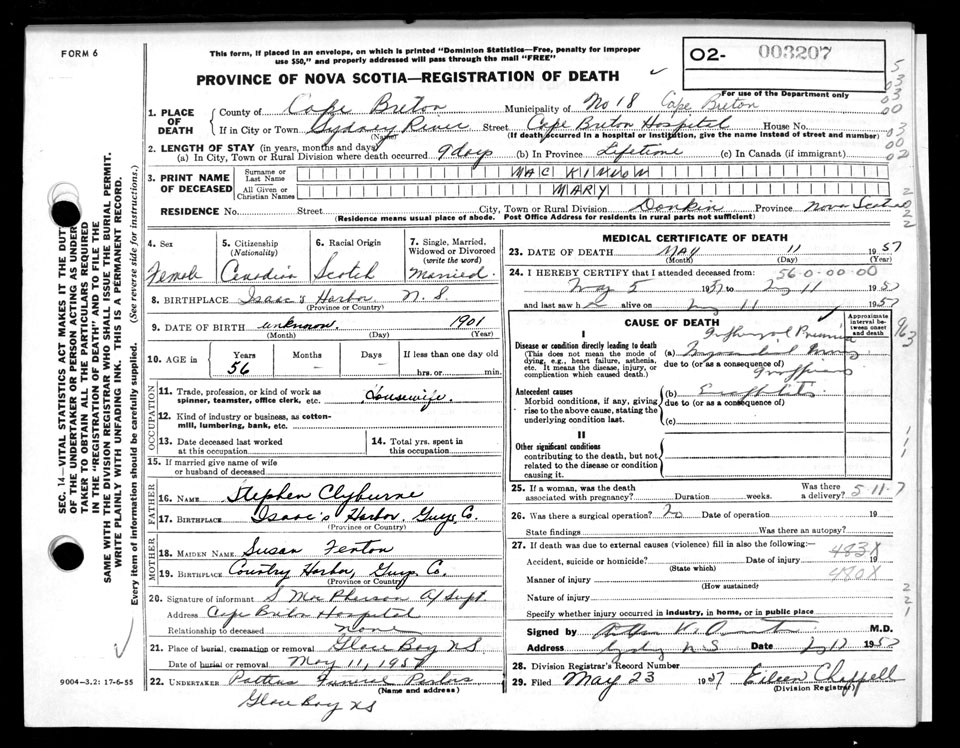 FORM 6
This form, if placed in an envelope, on which is printed "Dominion Statistics—Free, penalty for improper
use $50," and properly addressed will pass through the mail "FREE"
PROVINCE OF NOVA SCOTIA—REGISTRATION OF DEATH
O2- 003207
For use of the Department only
1. PLACE OF DEATH County of Cape Breton Municipality of No 18 Cape Breton
If in City or Town Sydney River Street Cape Breton Hospital House No.
(Name) (If death occurred in a hospital or institution, give the name instead of street and number)
2. LENGTH OF STAY (in years, months and days)
(a) In City, Town or Rural Division where death occurred 9 days (b) In Province Lifetime (c) In Canada (if immigrant)
3. PRINT NAME OF DECEASED Surname or Last Name MAC KINNON
All Given or Christian Names MARY
RESIDENCE No. Street City, Town or Rural Division Donkin Province Nova Scotia
(Residence means usual place of abode. Post Office Address for residents in rural parts not sufficient)
4. Sex Female
5. Citizenship (Nationality) Canadian
6. Racial Origin Scotch
7. Single, Married, Widowed or Divorced (write the word) Married.
8. BIRTHPLACE Isaac's Harbor N. S.
9. DATE OF BIRTH unknown. 1901
(Month) (Day) (Year)
10. AGE in Years 56 Months – Days – If less than one day old
hrs. or min.
OCCUPATION
11. Trade, profession or kind of work as
spinner, teamster, office clerk, etc. Housewife.
12. Kind of industry or business, as cotten-
mill, lumbering, bank, etc.
13. Date deceased last worked
at this occupation
14. Total yrs. spent in
this occupation
15. If married give name of wife
or husband of deceased
FATHER
16. NAME Stephen Clyburne
17. BIRTHPLACE Isaac's Harbor, Guys. Co.
(Province or Country)
MOTHER
18. MAIDEN NAME Susan Fenton
19. BIRTHPLACE Country Harbor, Guys. Co.
(Province or Country)
20. Signature of informant S Mac Pherson A/Supt
Address Cape Breton Hospital
Relationship to deceased none
21. Place of burial, cremation or removal Glace Bay NS
Date of burial or removal May 11, 1957
22. UNDERTAKER Funeral Parlors
(Name and address)
Glace Bay NS
MEDICAL CERTIFICATE OF DEATH
23. DATE OF DEATH MAY 11 1957
(Month) (Day) (Year)
24. I HEREBY CERTIFY that I attended deceased from: 56-0-00-00
May 5 1957 to May 11 1957
and last saw h alive on May 11 1957
CAUSE OF DEATH
Approximate interval between onset and death
I
Disease or condition directly leading to death
(This does not mean the mode of
dying, e.g., heart failure, asthenia,
etc. It means the disease, injury, or
complication which caused death.)
(a)
due to (or as a consequence of)
Antecedent causes
Morbid conditions, if any, giving
rise to the above cause, stating the
underlying condition last.
(b)
due to (or as a consequence of)
(c)
II
Other significant conditions
contributing to the death, but not
related to the disease or condition
causing it.
25. If a woman, was the death
associated with pregnancy? Duration weeks. Was there
a delivery? 5-11-7
26. Was there a surgical operation? No Date of operation 19
State findings Was there an autopsy?
27. If death was due to external causes (violence) fill in also the following:—
Accident, suicide or homicide? Date of injury 19
(State which) 483X
Manner of injury 480X
(How sustained)
Nature of injury
Specify whether injury occurred in industry, in home, or in public place
Signed by M.D.
Address Sydney N S Date 1957
28. Division Registrar's Record Number
29. Filed May 23 1957 Eileen Chappell
(Division Registrar)
SEC. 14—VITAL STATISTICS ACT MAKES IT THE DUTY
OF THE UNDERTAKER OR PERSON ACTING AS UNDER-
TAKER TO OBTAIN ALL THE PARTICULARS REQUIRED
IN THE "REGISTRATION OF DEATH" AND TO FILE THE
SAME WITH THE DIVISION REGISTRAR WHO SHALL ISSUE THE BURIAL PERMIT.
WRITE PLAINLY WITH UNFADING INK. THIS IS A PERMANENT RECORD.
Every item of information should be carefully supplied. (See reverse side for instructions.)
9004-3.2: 17-6-55